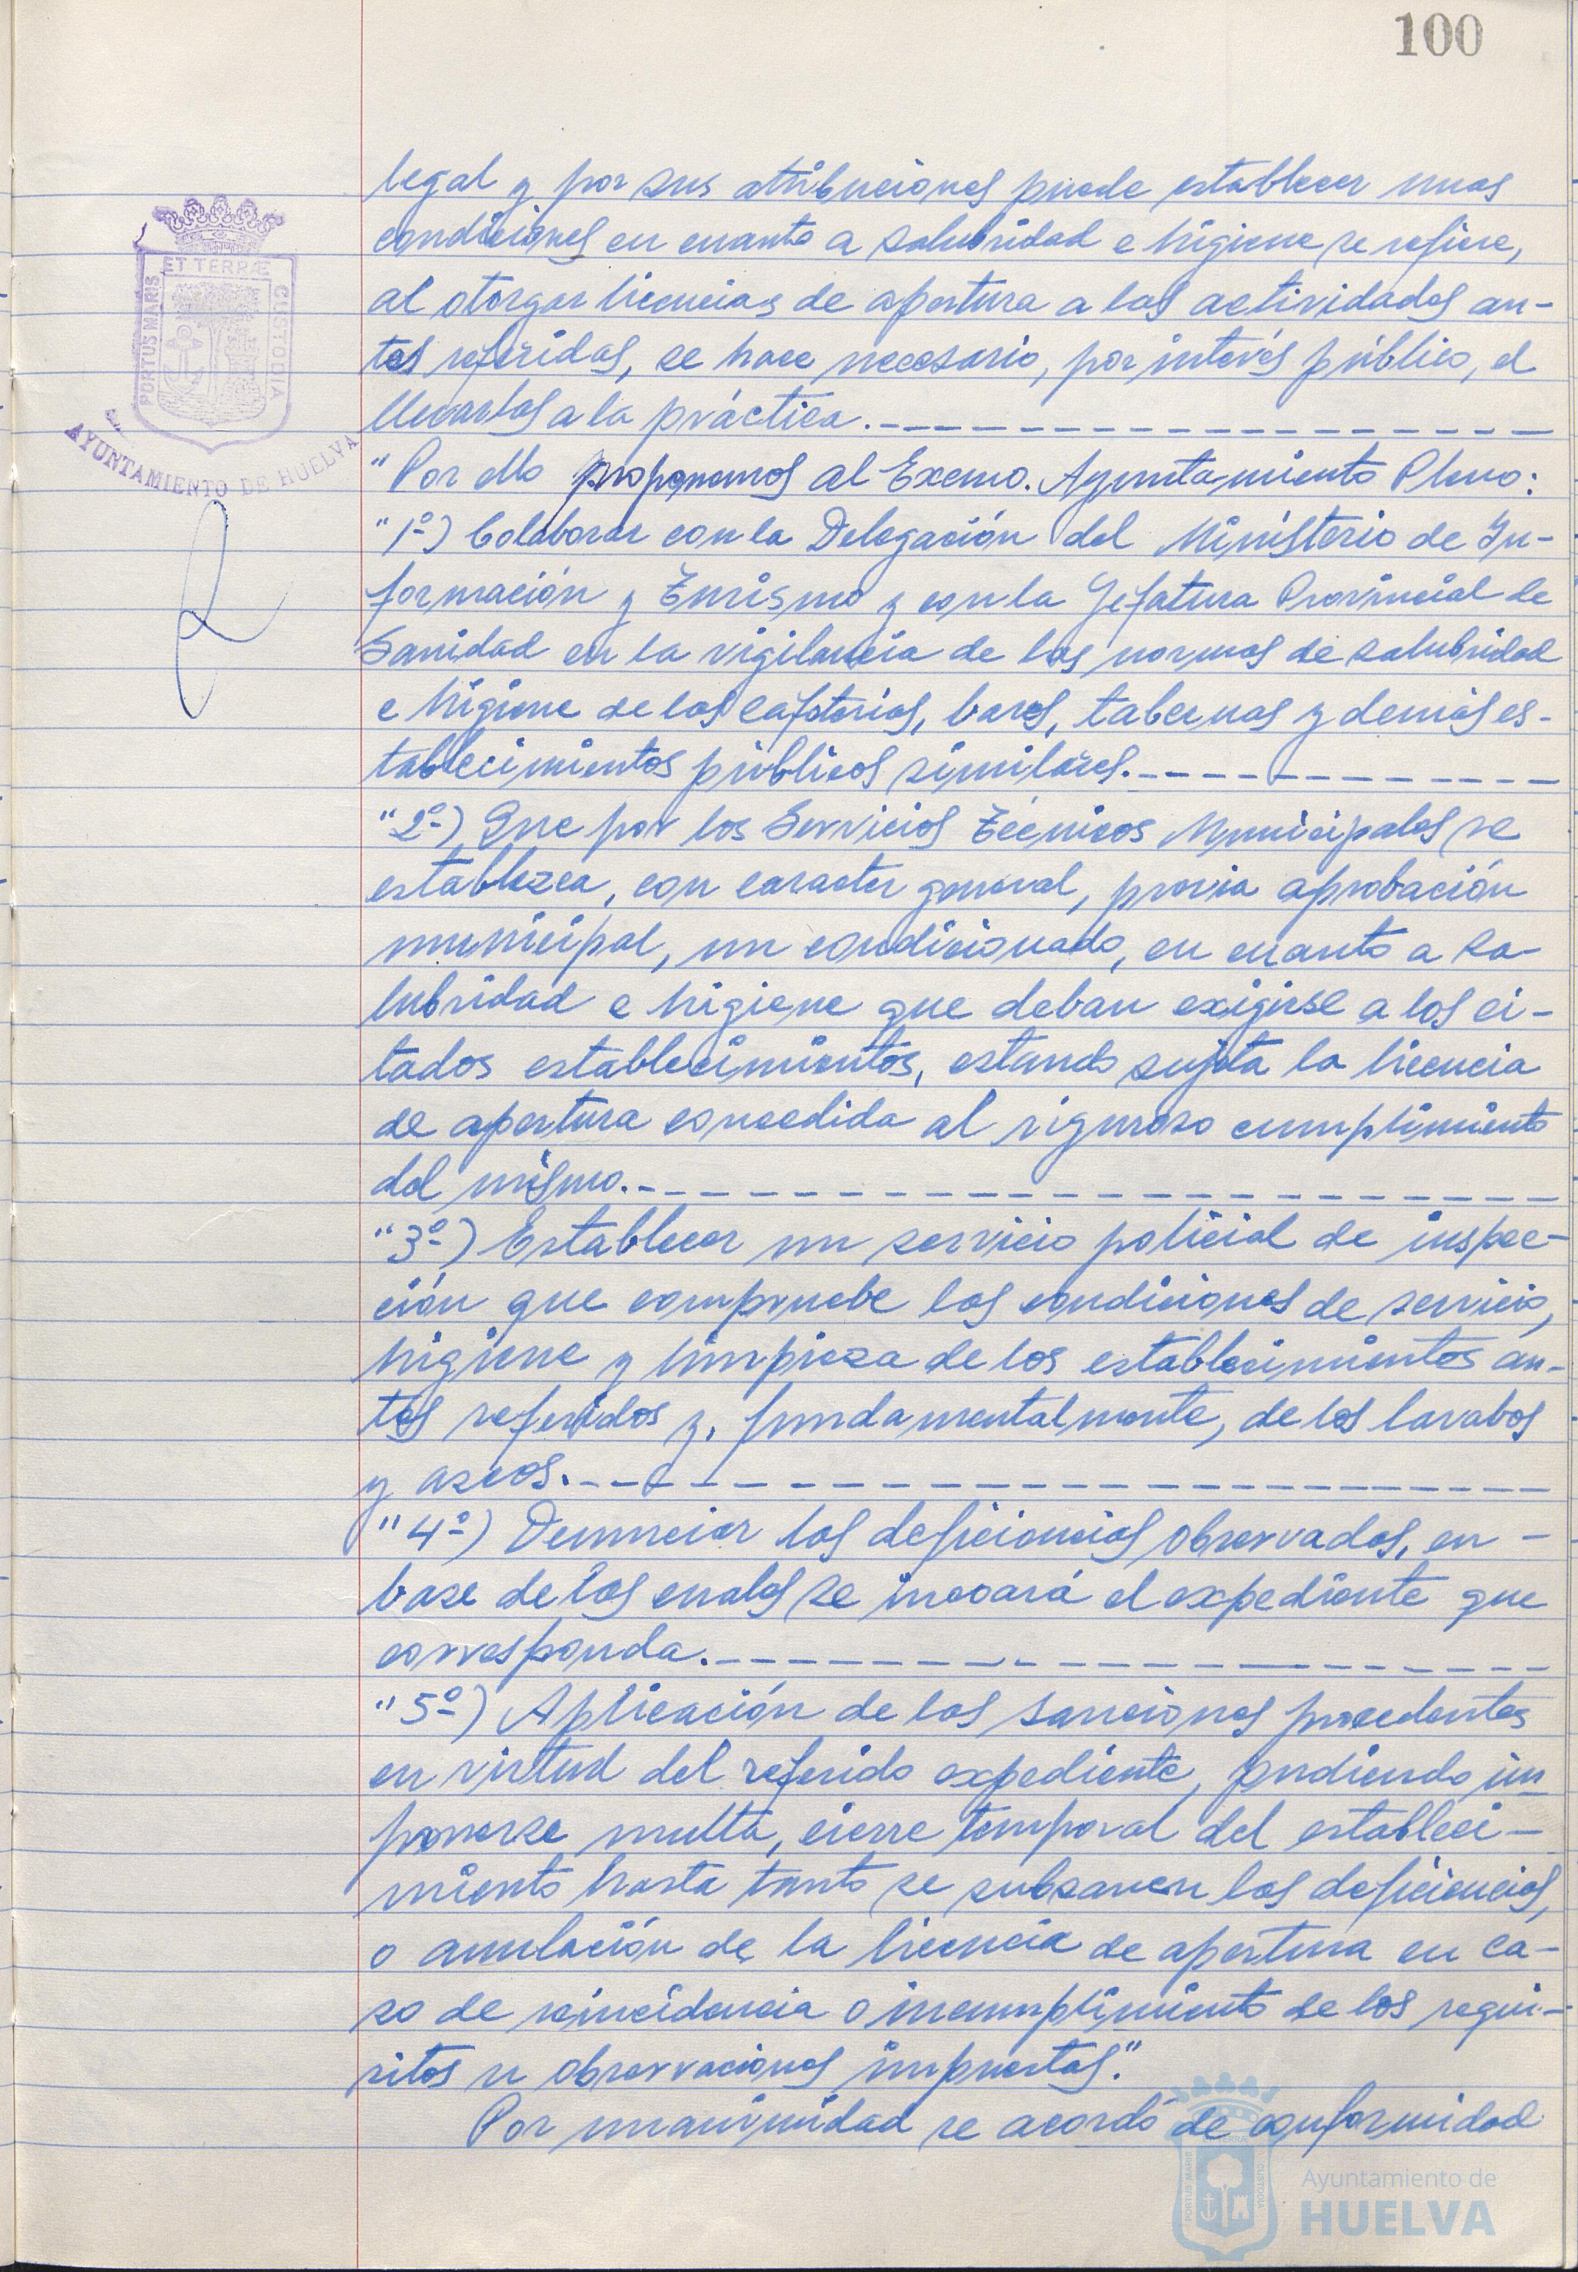 100
legal y por sus atribuciones puede establecer unas
condiciones en cuanto a salubridad e higiene se refiere,
al otorgar licencias de apertura a las actividades an-
tes referidas, se hace necesario, por interés público, el
llevarlas a la práctica.
"Por ello proponemos al Excmo. Ayuntamiento Pleno:
"1º) Colaborar con la Delegación del Ministerio de In-
formación y Turismo y con la Jefatura Provincial de
Sanidad en la vigilancia de las normas de salubridad
e higiene de las cafeterias, bares, tabernas y demás es-
tablecimientos públicos similares.
"2º) Que por los Servicios Técnicos Municipales se
establezca, con caracter general, previa aprobación
municipal, un condicionado, en cuanto a sa-
lubridad e higiene que deban exigirse a los ci-
tados establecimientos, estando sujeta la licencia
de apertura concedida al riguroso cumplimiento
del mismo.
"3º) Establecer un servicio policial de inspec-
ción que compruebe las condiciones de servicio,
higiene y limpieza de los establecimientos an-
tes referidos y, fundamentalmente, de los lavabos
y aseos.
"4º) Denunciar las deficiencias observadas, en -
base de las cuales se incoará el expediente que
corresponda.
"5º) Aplicación de las sanciones procedentes
en virtud del referido expediente, pudiendo im
ponerse multa, cierre temporal del estableci-
miento hasta tanto se subsanen las deficiencias,
o anulación de la licencia de apertura en ca-
so de reincidencia o incumplimiento de los requi-
sitos u observaciones impuestas."
Por unanimidad se acordó de conformidad
PORTUS MARIS
ET TERRÆ
CUSTODIA
AYUNTAMIENTO DE HUELVA
PORTUS MARIS
CUSTODIA
Ayuntamiento de
HUELVA